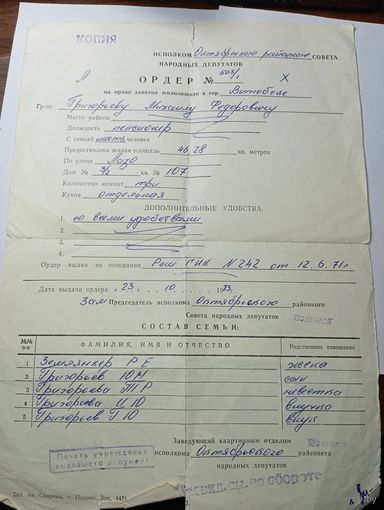 КОПИЯ
ИСПОЛКОМ Октябрьского районного СОВЕТА
НАРОДНЫХ ДЕПУТАТОВ
ОРДЕР № 503/1
на право занятия жилплощади в гор. Витебске
Гр-ну Григорьеву Михаилу Федоровичу
Место работы
Должность пенсионер
С семьей шесть человек
Предоставлена жилая площадь 46.28 кв. метров
По улице Лазо
Дом № 3/2 кв. № 107
Количество комнат три
Кухня отдельная
ДОПОЛНИТЕЛЬНЫЕ УДОБСТВА:
1. со всеми удобствами
2.
3.
4.
Ордер выдан на основании Реш ГИК N 242 от 12.6.71г
Дата выдачи ордера «23. 10. 1973.
Зам Председатель исполкома Октябрьского районного
Совета народных депутатов подпись
СОСТАВ СЕМЬИ:
№№ п-п ФАМИЛИЯ, ИМЯ И ОТЧЕСТВО Родственное отношение
1 Землянкер Р Е жена
2 Григорьев Ю М сын
3 Григорьева Т Р невестка
4 Григорьева И Ю внучка
5 Григорьев Г Ю внук
Заведующий квартирным отделом подпись
исполкома Октябрьского райсовета
народных депутатов
Печать учреждения
выдавшего документ
на обороте
Тип. им. Скорины, г. Полоцк, Зак. 4471